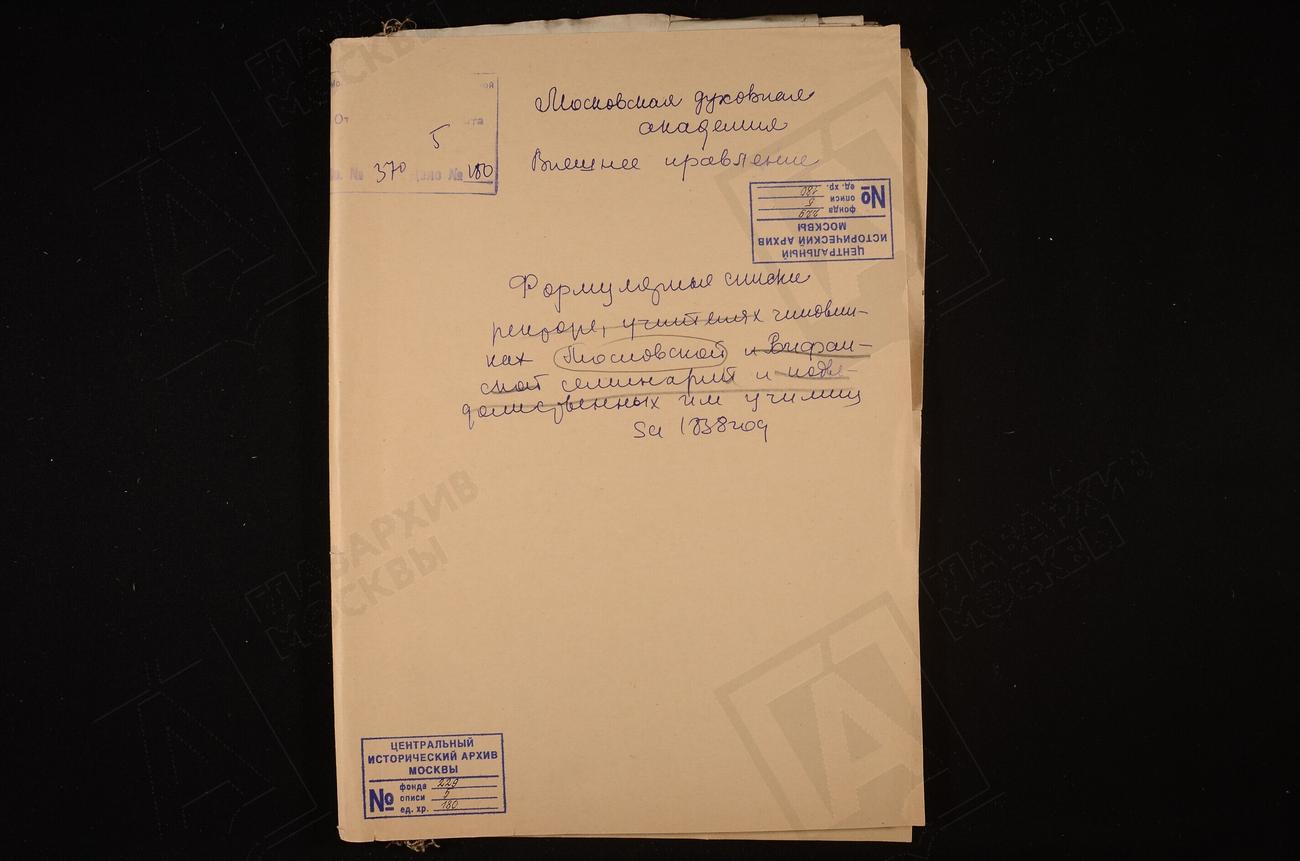 От
5
№ 370 Дело № 180
Московская духовная
академия
Внешнее правление
№
фонда 229
описи 5
ед. хр. 180
ЦЕНТРАЛЬНЫЙ
ИСТОРИЧЕСКИЙ АРХИВ
МОСКВЫ
Формулярные списки
ректоре, учителях чиновни-
ках Московской и Вифан-
ской семинарий и подве-
домственных им училищ
за 1838 год
ЦЕНТРАЛЬНЫЙ
ИСТОРИЧЕСКИЙ АРХИВ
МОСКВЫ
№
фонда 229
описи 5
ед. хр. 180
ГЛАВАРХИВ
МОСКВЫ